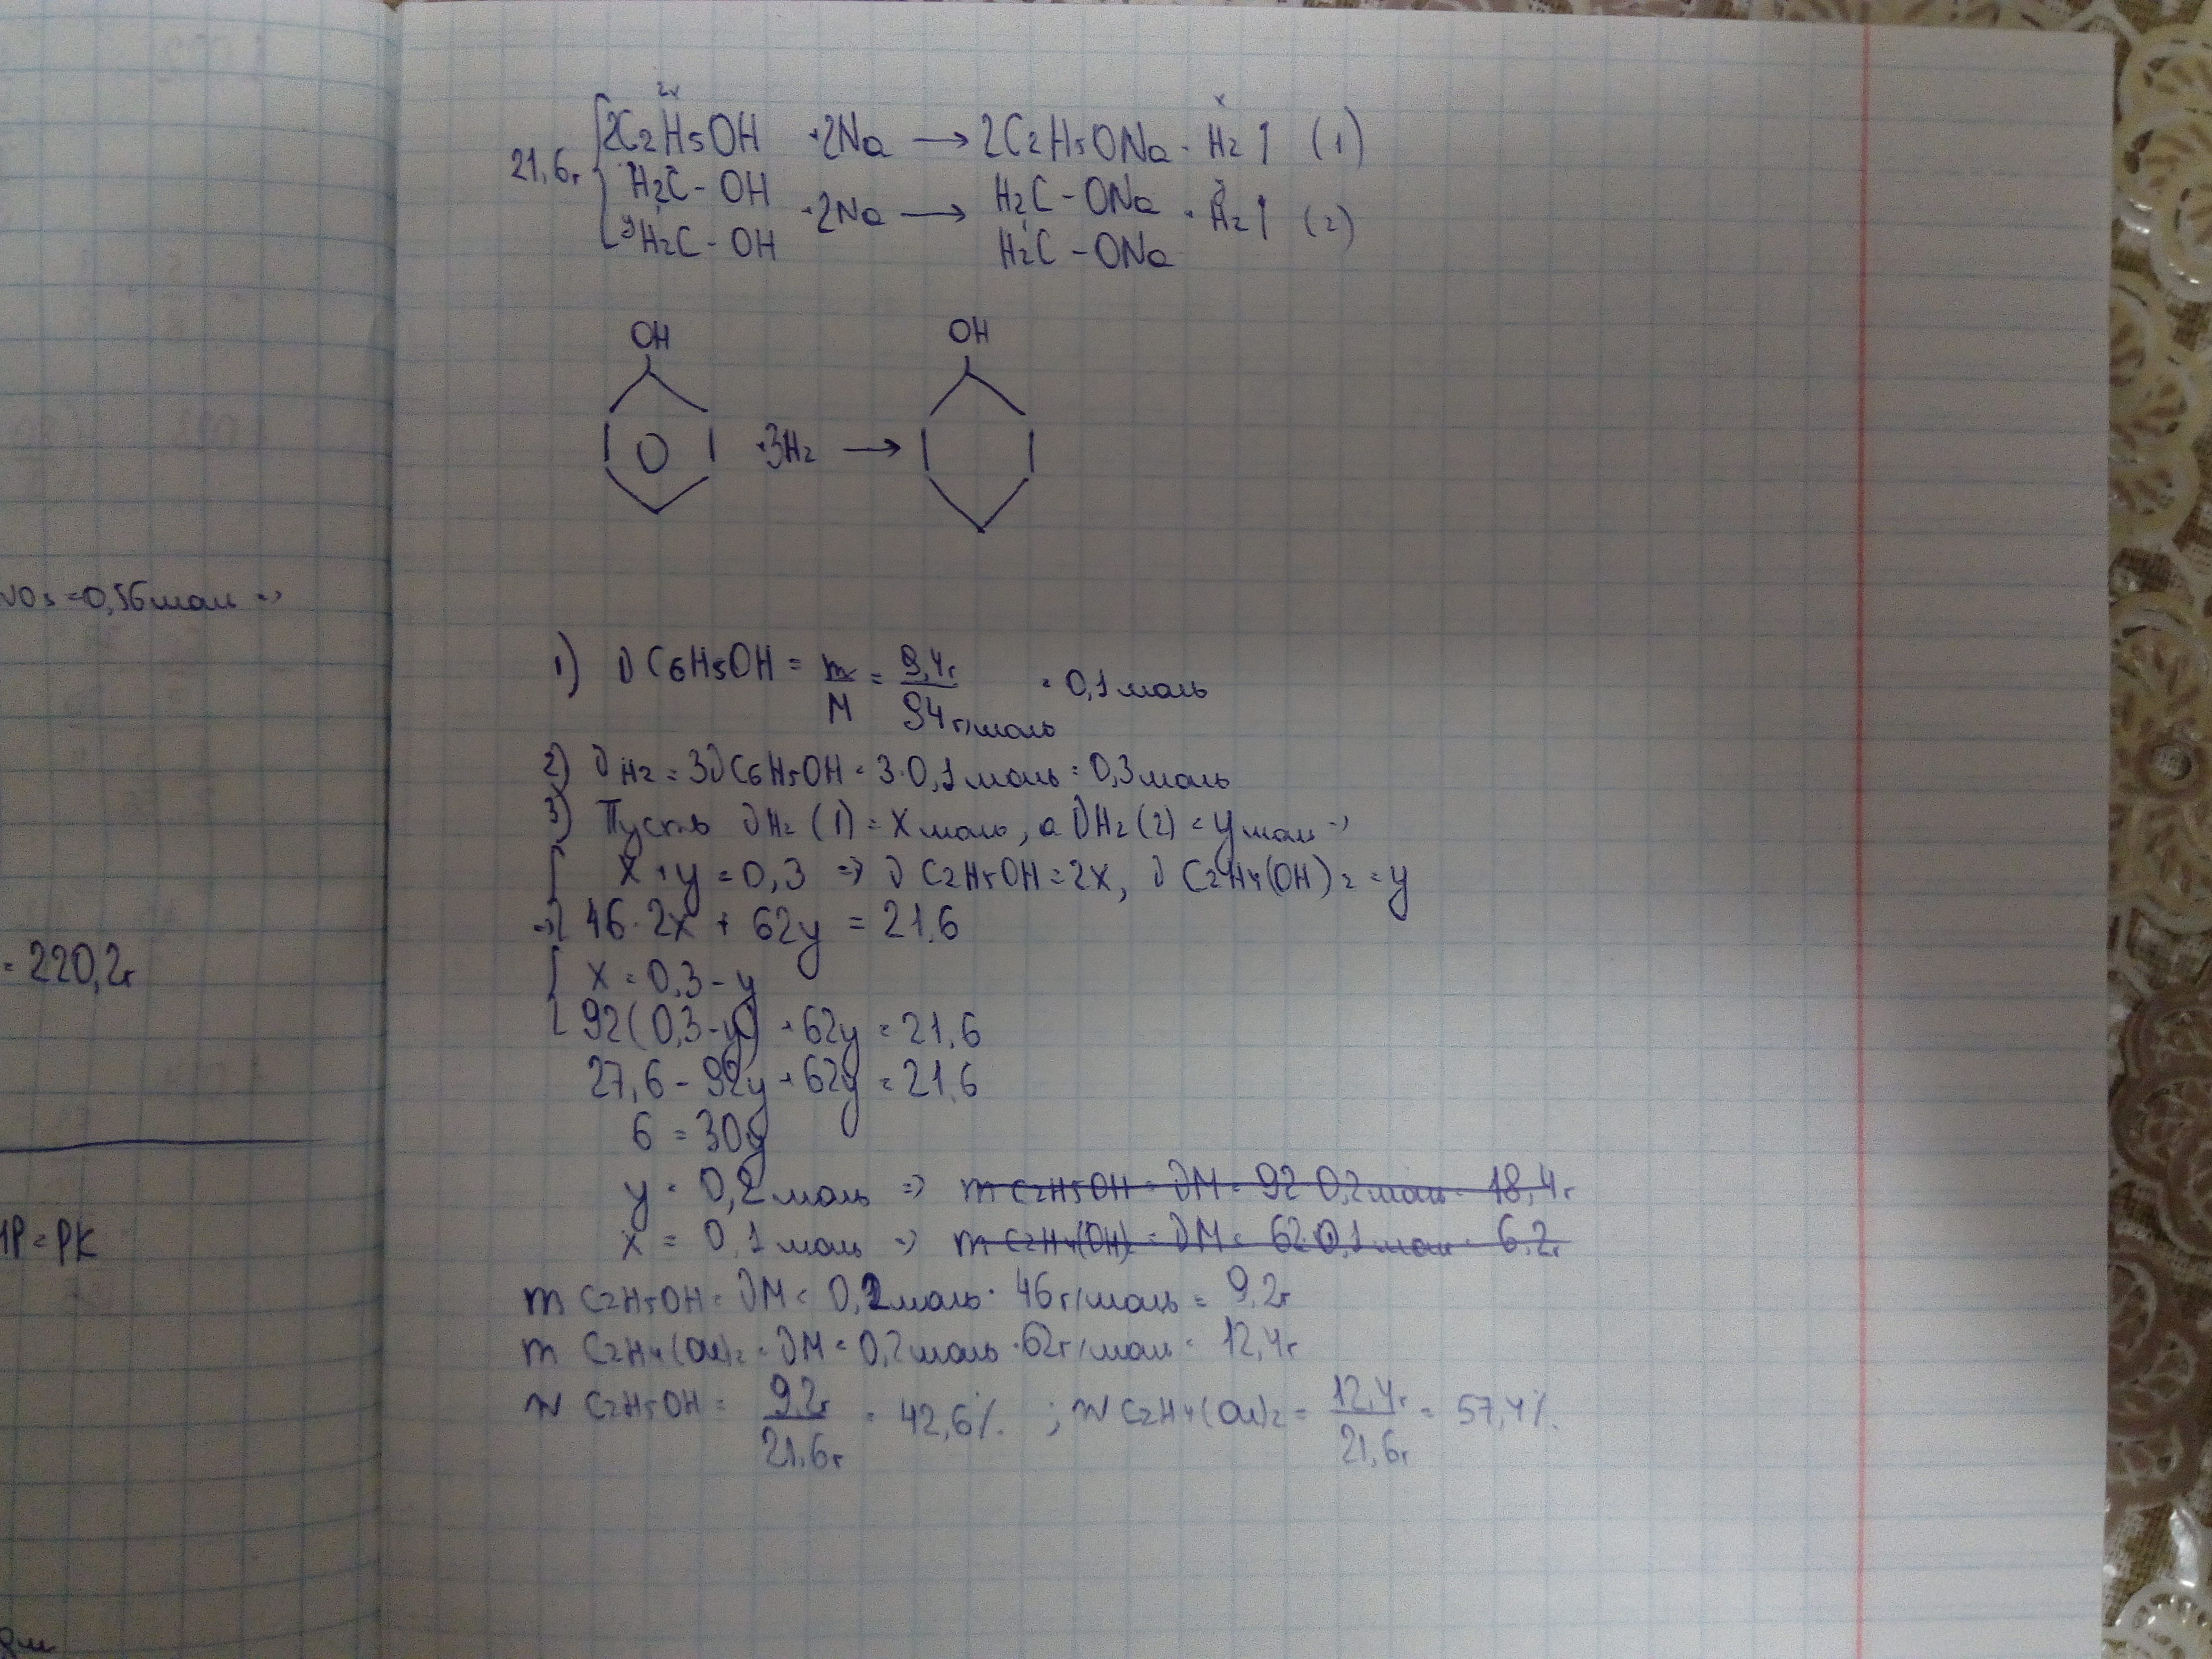 2x x
2C2H5OH + 2Na → 2C2H5ONa + H2↑ (1)
21,6г
H2C - OH H2C - ONa y
+ 2Na → + H2↑ (2)
y H2C - OH H2C - ONa
OH OH
+ 3H2 →
1) ν C6H5OH = m/M = 9,4г/94г/моль = 0,1 моль
2) ν H2 = 3ν C6H5OH = 3·0,1 моль = 0,3 моль
3) Пусть ν H2 (1) = x моль, а ν H2 (2) = y моль =>
x + y = 0,3 => ν C2H5OH = 2x, ν C2H4(OH)2 = y
=> 46·2x + 62y = 21,6
x = 0,3 - y
92(0,3 - y) + 62y = 21,6
27,6 - 92y + 62y = 21,6
6 = 30y
y = 0,2 моль => m C2H5OH = νM = 92·0,2 моль = 18,4г
x = 0,1 моль => m C2H4(OH)2 = νM = 62·0,1 моль = 6,2г
m C2H5OH = νM = 0,2 моль · 46 г/моль = 9,2г
m C2H4(OH)2 = νM = 0,2 моль · 62г/моль = 12,4г
w C2H5OH = 9,2г/21,6г = 42,6% ; w C2H4(OH)2 = 12,4г/21,6г = 57,4%
= 0,56 моль =>
= 220,2г
= PK